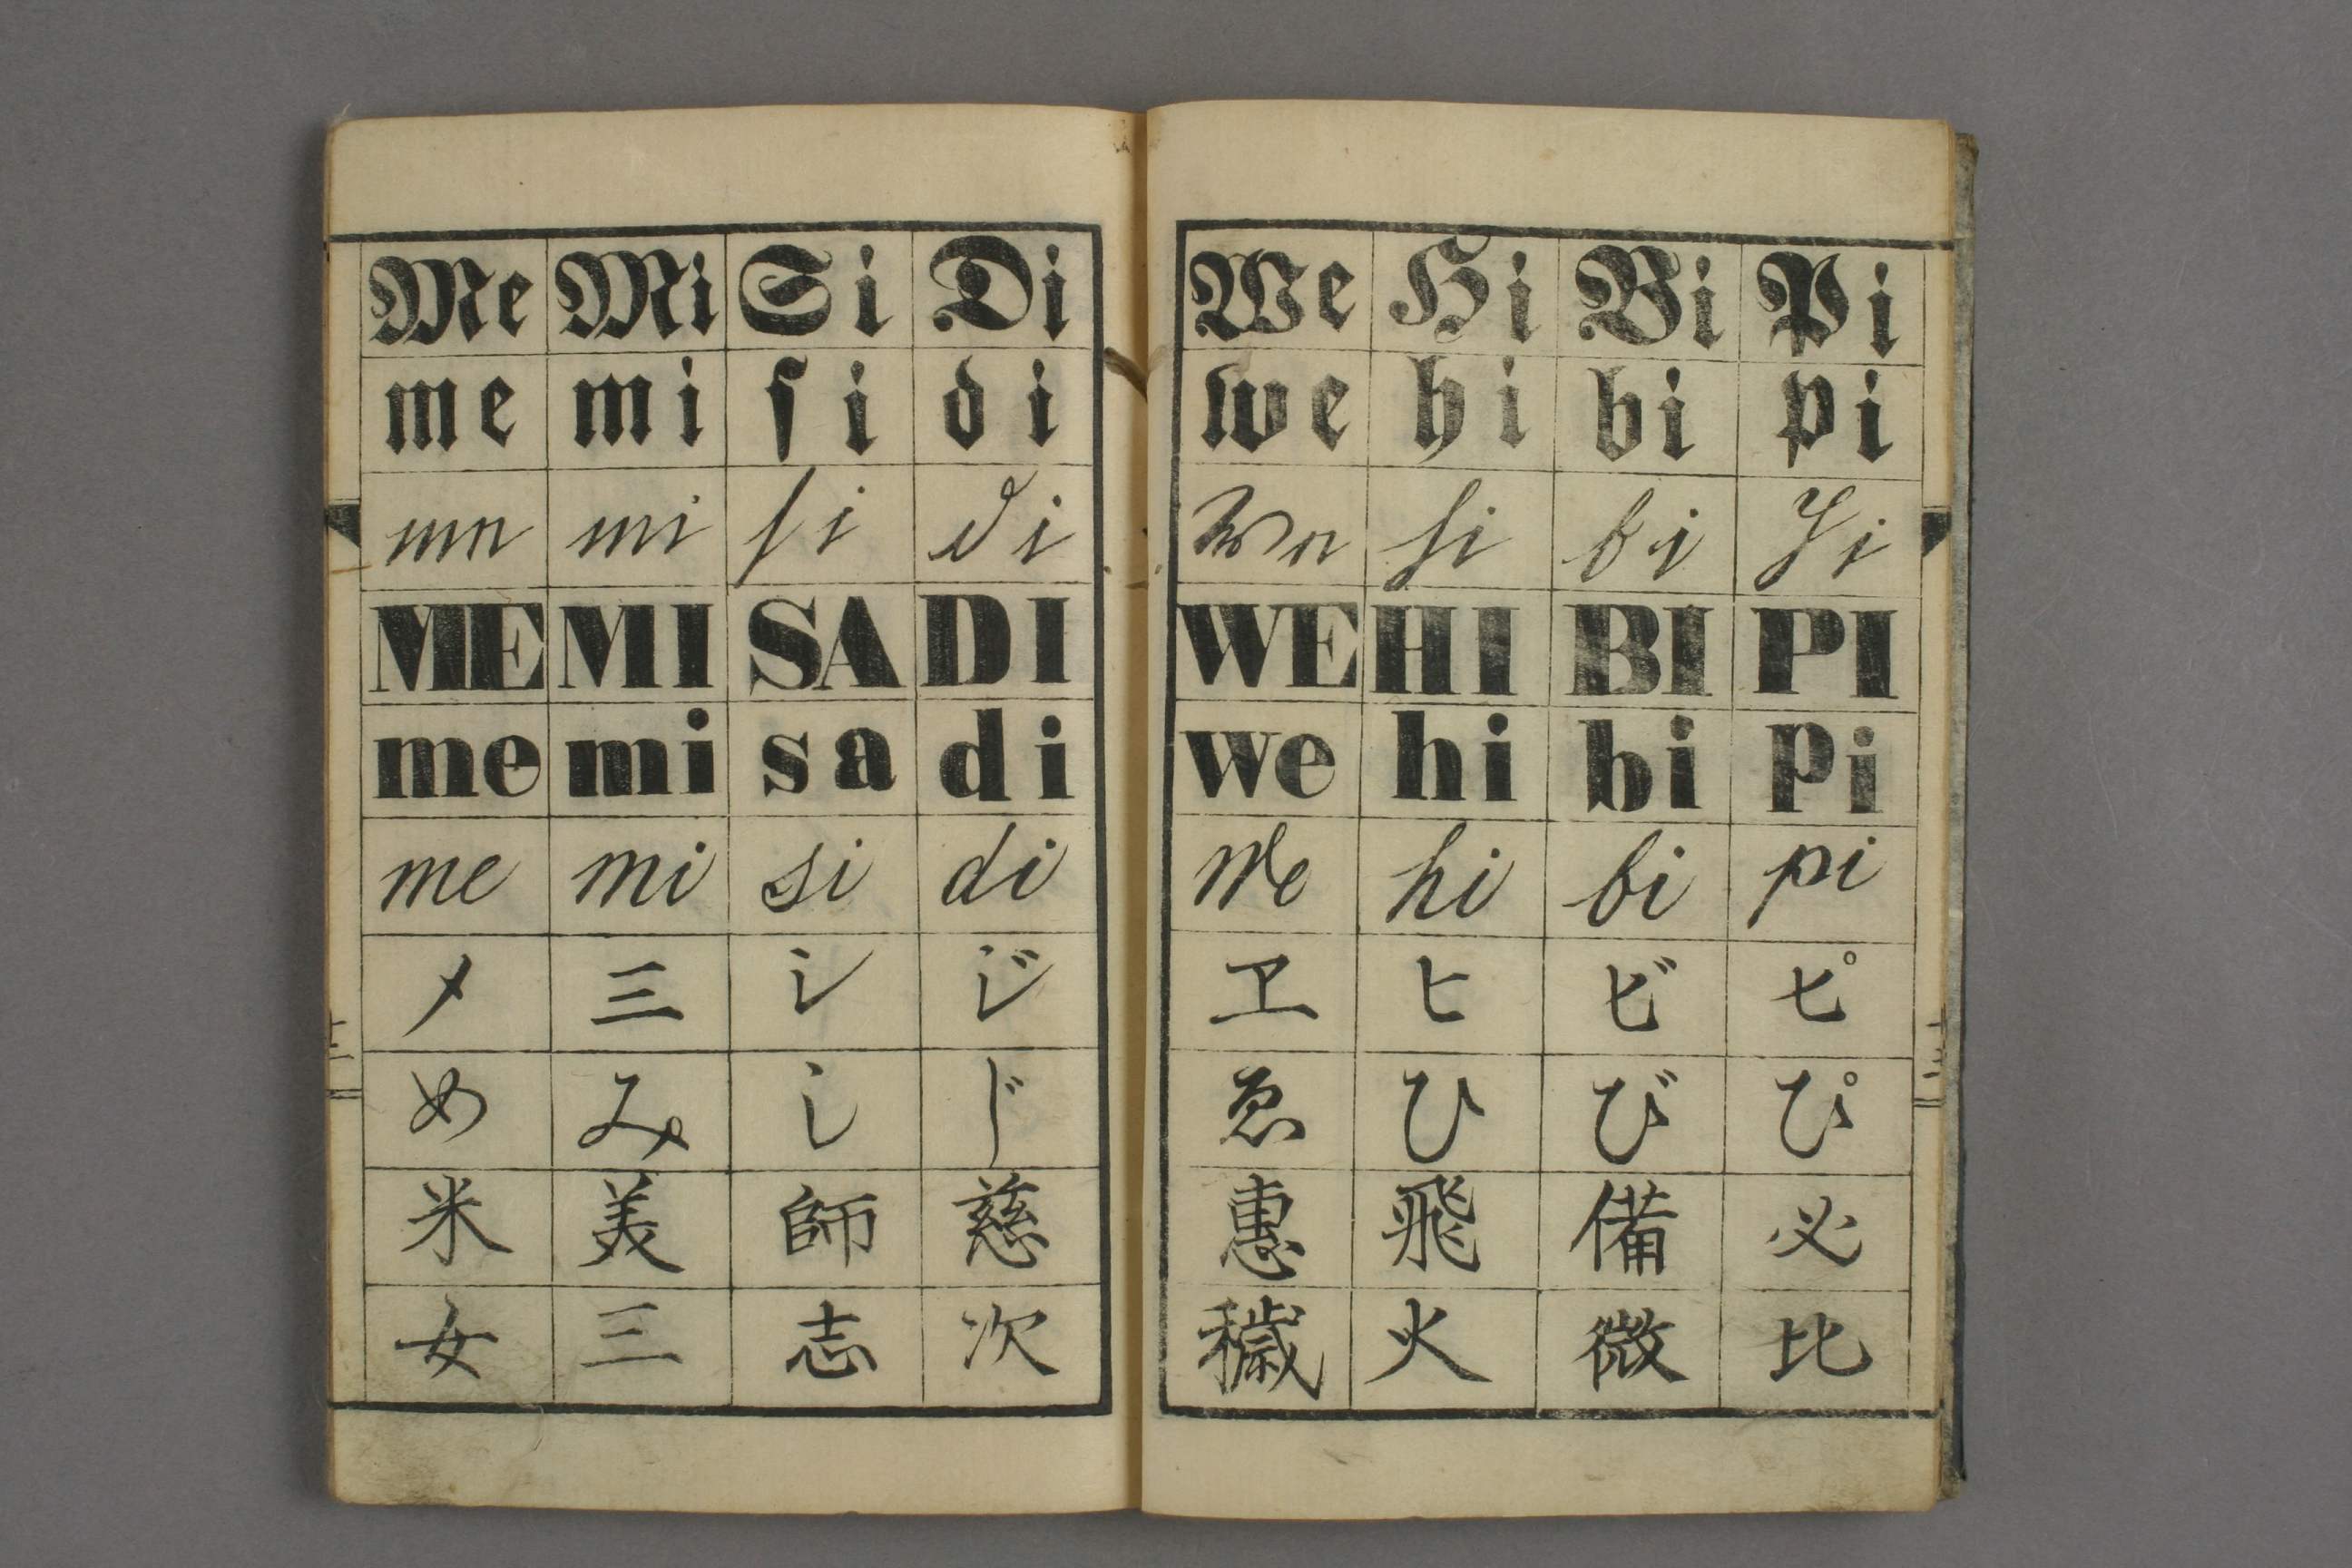 Me Mi Si Di We Hi Bi Pi
me mi ſi di we hi bi pi
me mi ſi di We hi bi pi
ME MI SA DI WE HI BI PI
me mi sa di we hi bi pi
me mi si di We hi bi pi
メ 三 シ ジ ヱ ヒ ビ ピ
め み し じ ゑ ひ び ぴ
米 美 師 慈 惠 飛 備 必
女 三 志 次 穢 火 微 比